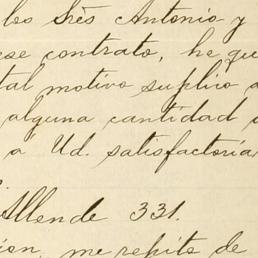 los Srès Antonio y
ese contrato, he qu
tal motivo suplico a
alguna cantidad
á Ud. satisfactoria
Allende 331.
ion, me repito de